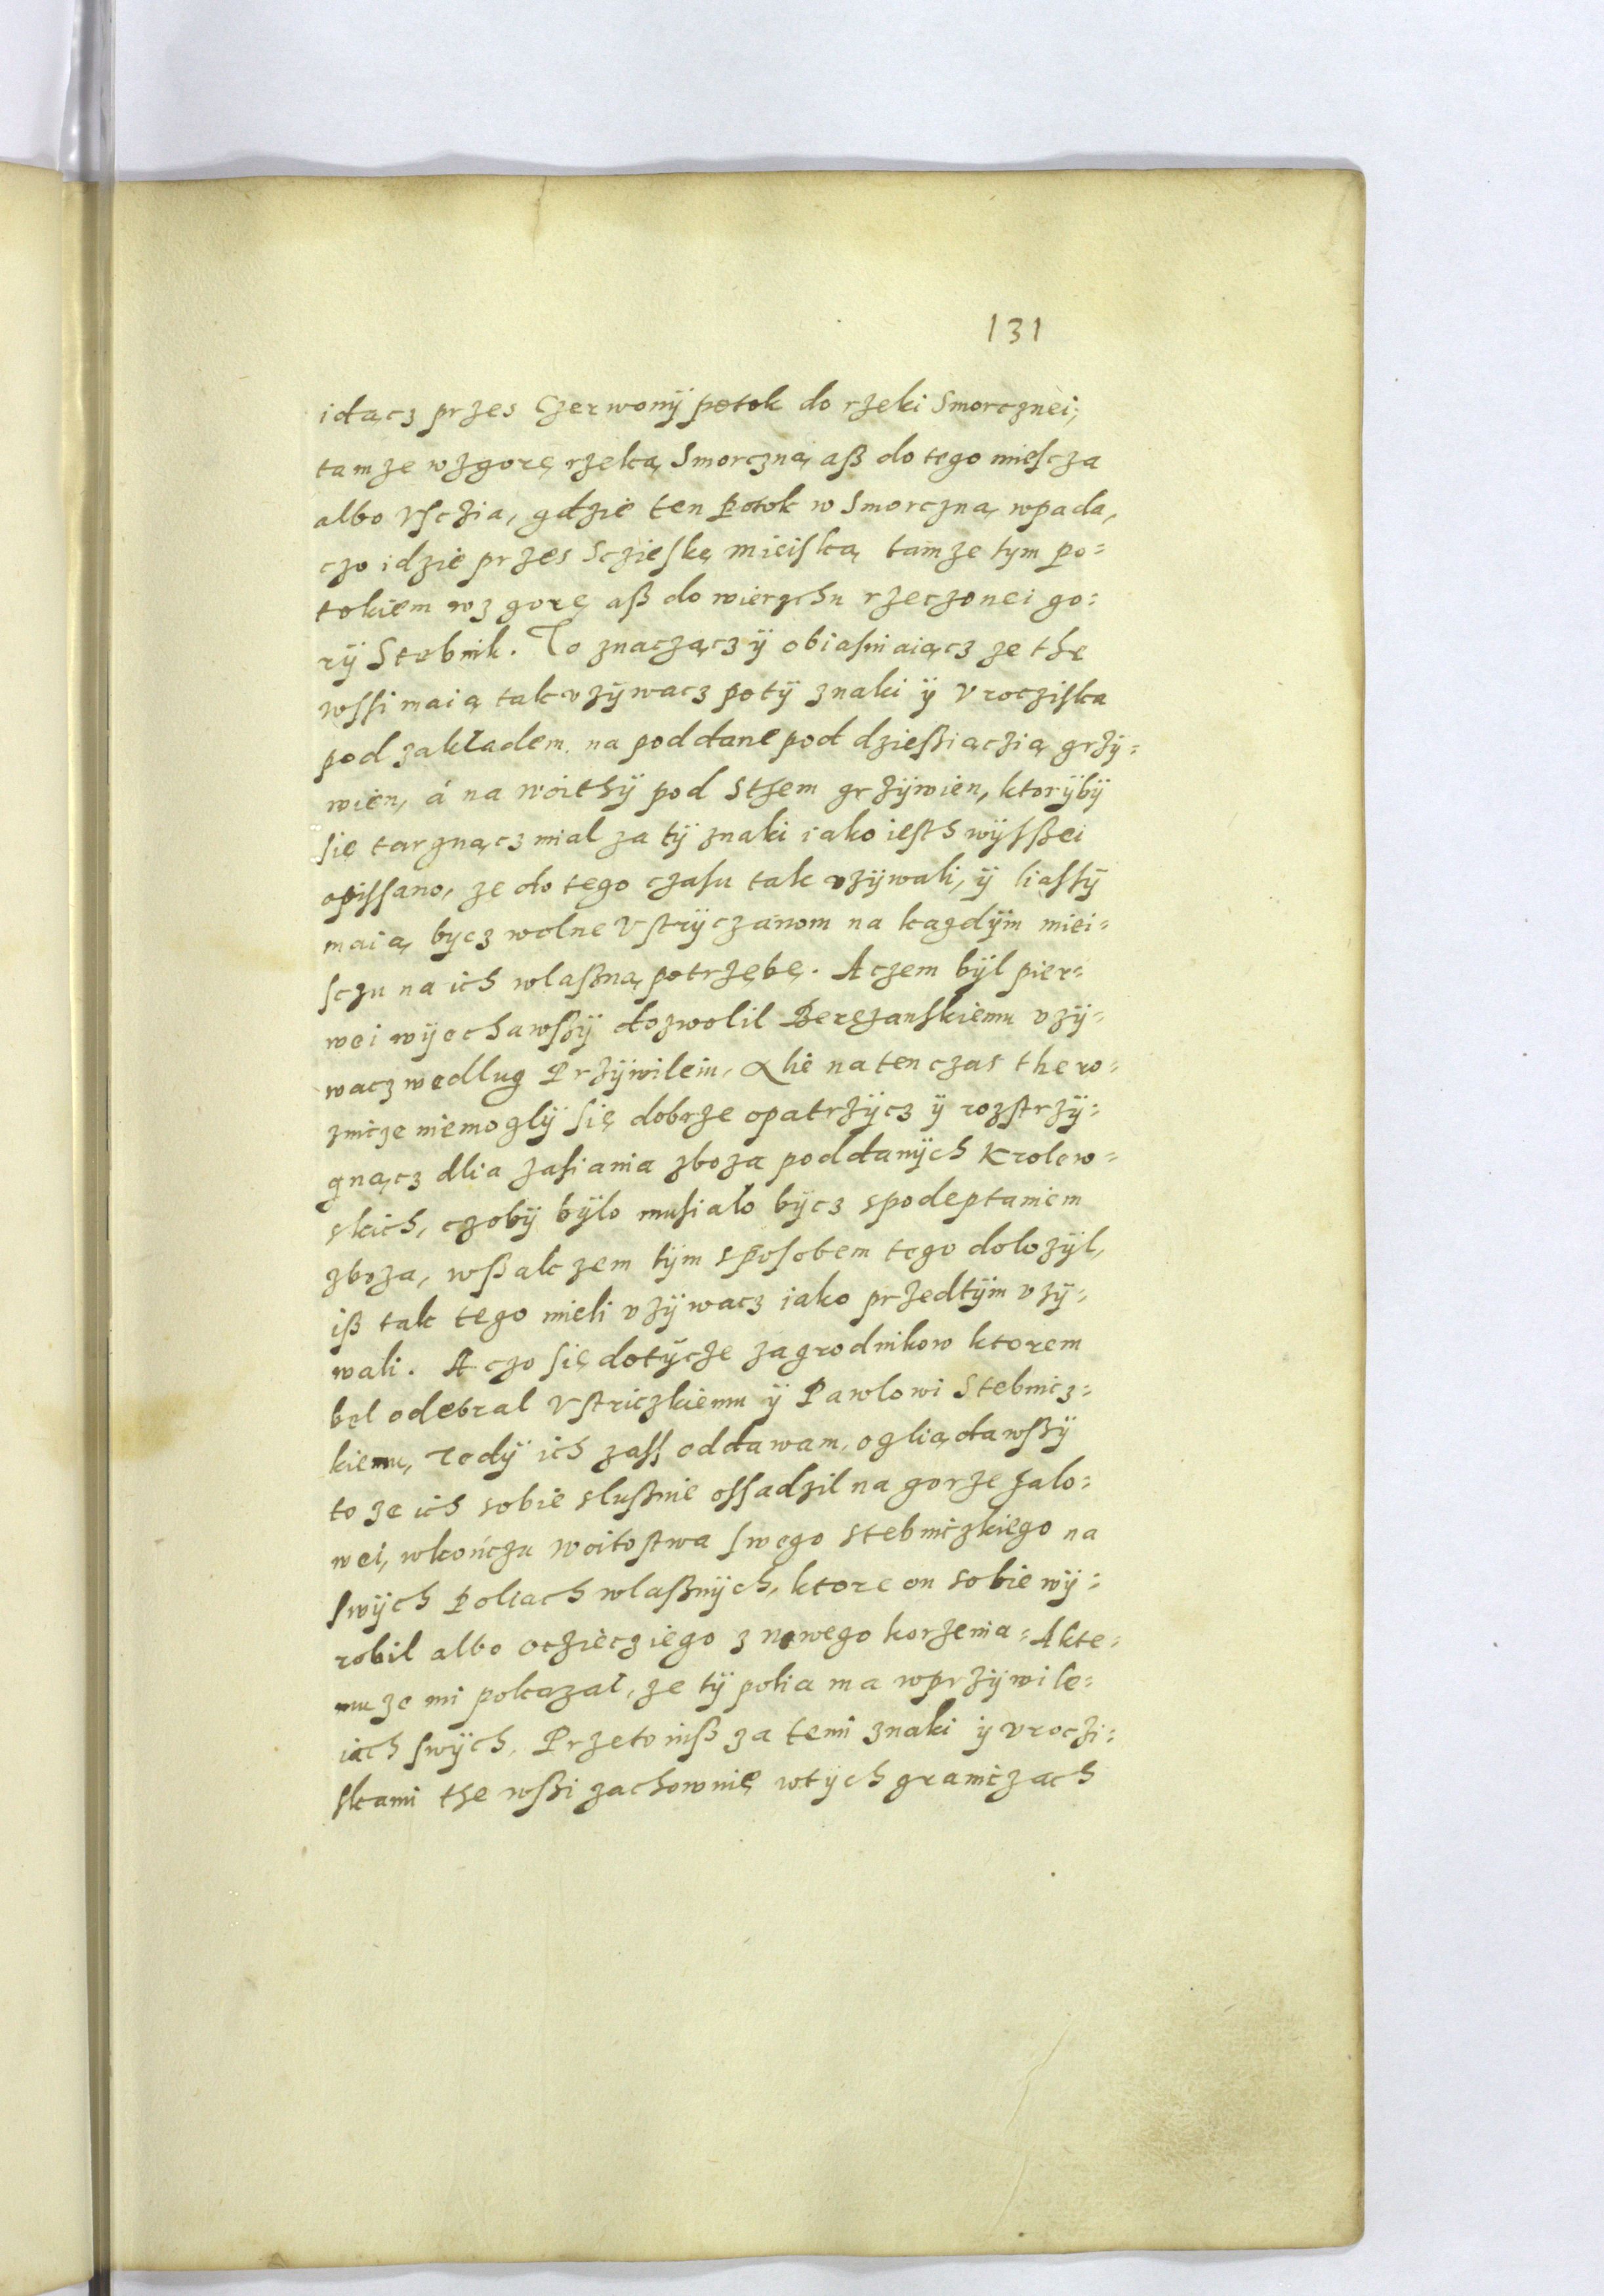 131
idącz przes Czerwonÿ potok do rzeki Smorcznei,
tamze wzgorę rzeką Smorczną aß do tego miescza
albo Vsczia, gdzie ten Potok w Smorczną wpada,
czo idzie przes Sczieskę mieiską tamze tym po=
tokiem wz gorę aß do wierzchu rzeczonei go=
rÿ Stebnik. To znaczącz ÿ obiasniaiącz ze the
wssi maią tak vzÿwacz po tÿ znaki ÿ Vrocziska
pod zakładem na poddane pod dzießiączią grzÿ=
wien, á na woithÿ pod Stzem grzÿwien, ktorÿbÿ
się targnącz mial za tÿ znaki iako iesth wÿsßei
opissano, ze do tego czasu tak vzÿwali, ÿ liassÿ
maią bÿcz wolne Vstrÿczanom na kagdÿm miei=
sczu na ich wlaßną potrzębę. Aczem bÿl pier=
wei wÿechawßÿ dozwolil Berezanskiemu vzÿ=
wacz wedlug Przÿwileiu, Alie na ten czas the ro=
znicze niemoglÿ się dobrze opatrzÿcz ÿ rozstrzÿ=
gnącz dlia zasiania zboza poddanÿch Krolew=
skich, czobÿ bÿlo musialo bÿcz spodeptaniem
zboza, wßakzem tÿm sposobem tego dolozÿl,
iß tak tego mieli vzÿwacz iako przedtÿm vzÿ=
wali. A czo się dotÿcze zagrodnikow ktorem
bel odebral Vstriczkiemu ÿ Pawlowi Stebnicz=
kiemu, Tedÿ ich zass oddawam, oglią̨dawßÿ
to ze ich sobie slußnie ossadzil na gorze Jalo=
wei, wkończu woitostwa swego stebniczkiego na
swÿch Poliach wlaßnÿch, ktore on sobie wÿ=
robil albo ocziecziego z nowego korzenia= Akte=
mu ze mi pokazał, ze tÿ polia ma wprzÿwile=
iach swÿch, Przeto iuß za temi znaki ÿ vroczi=
skami the wßi zachownię wtÿch graniczach